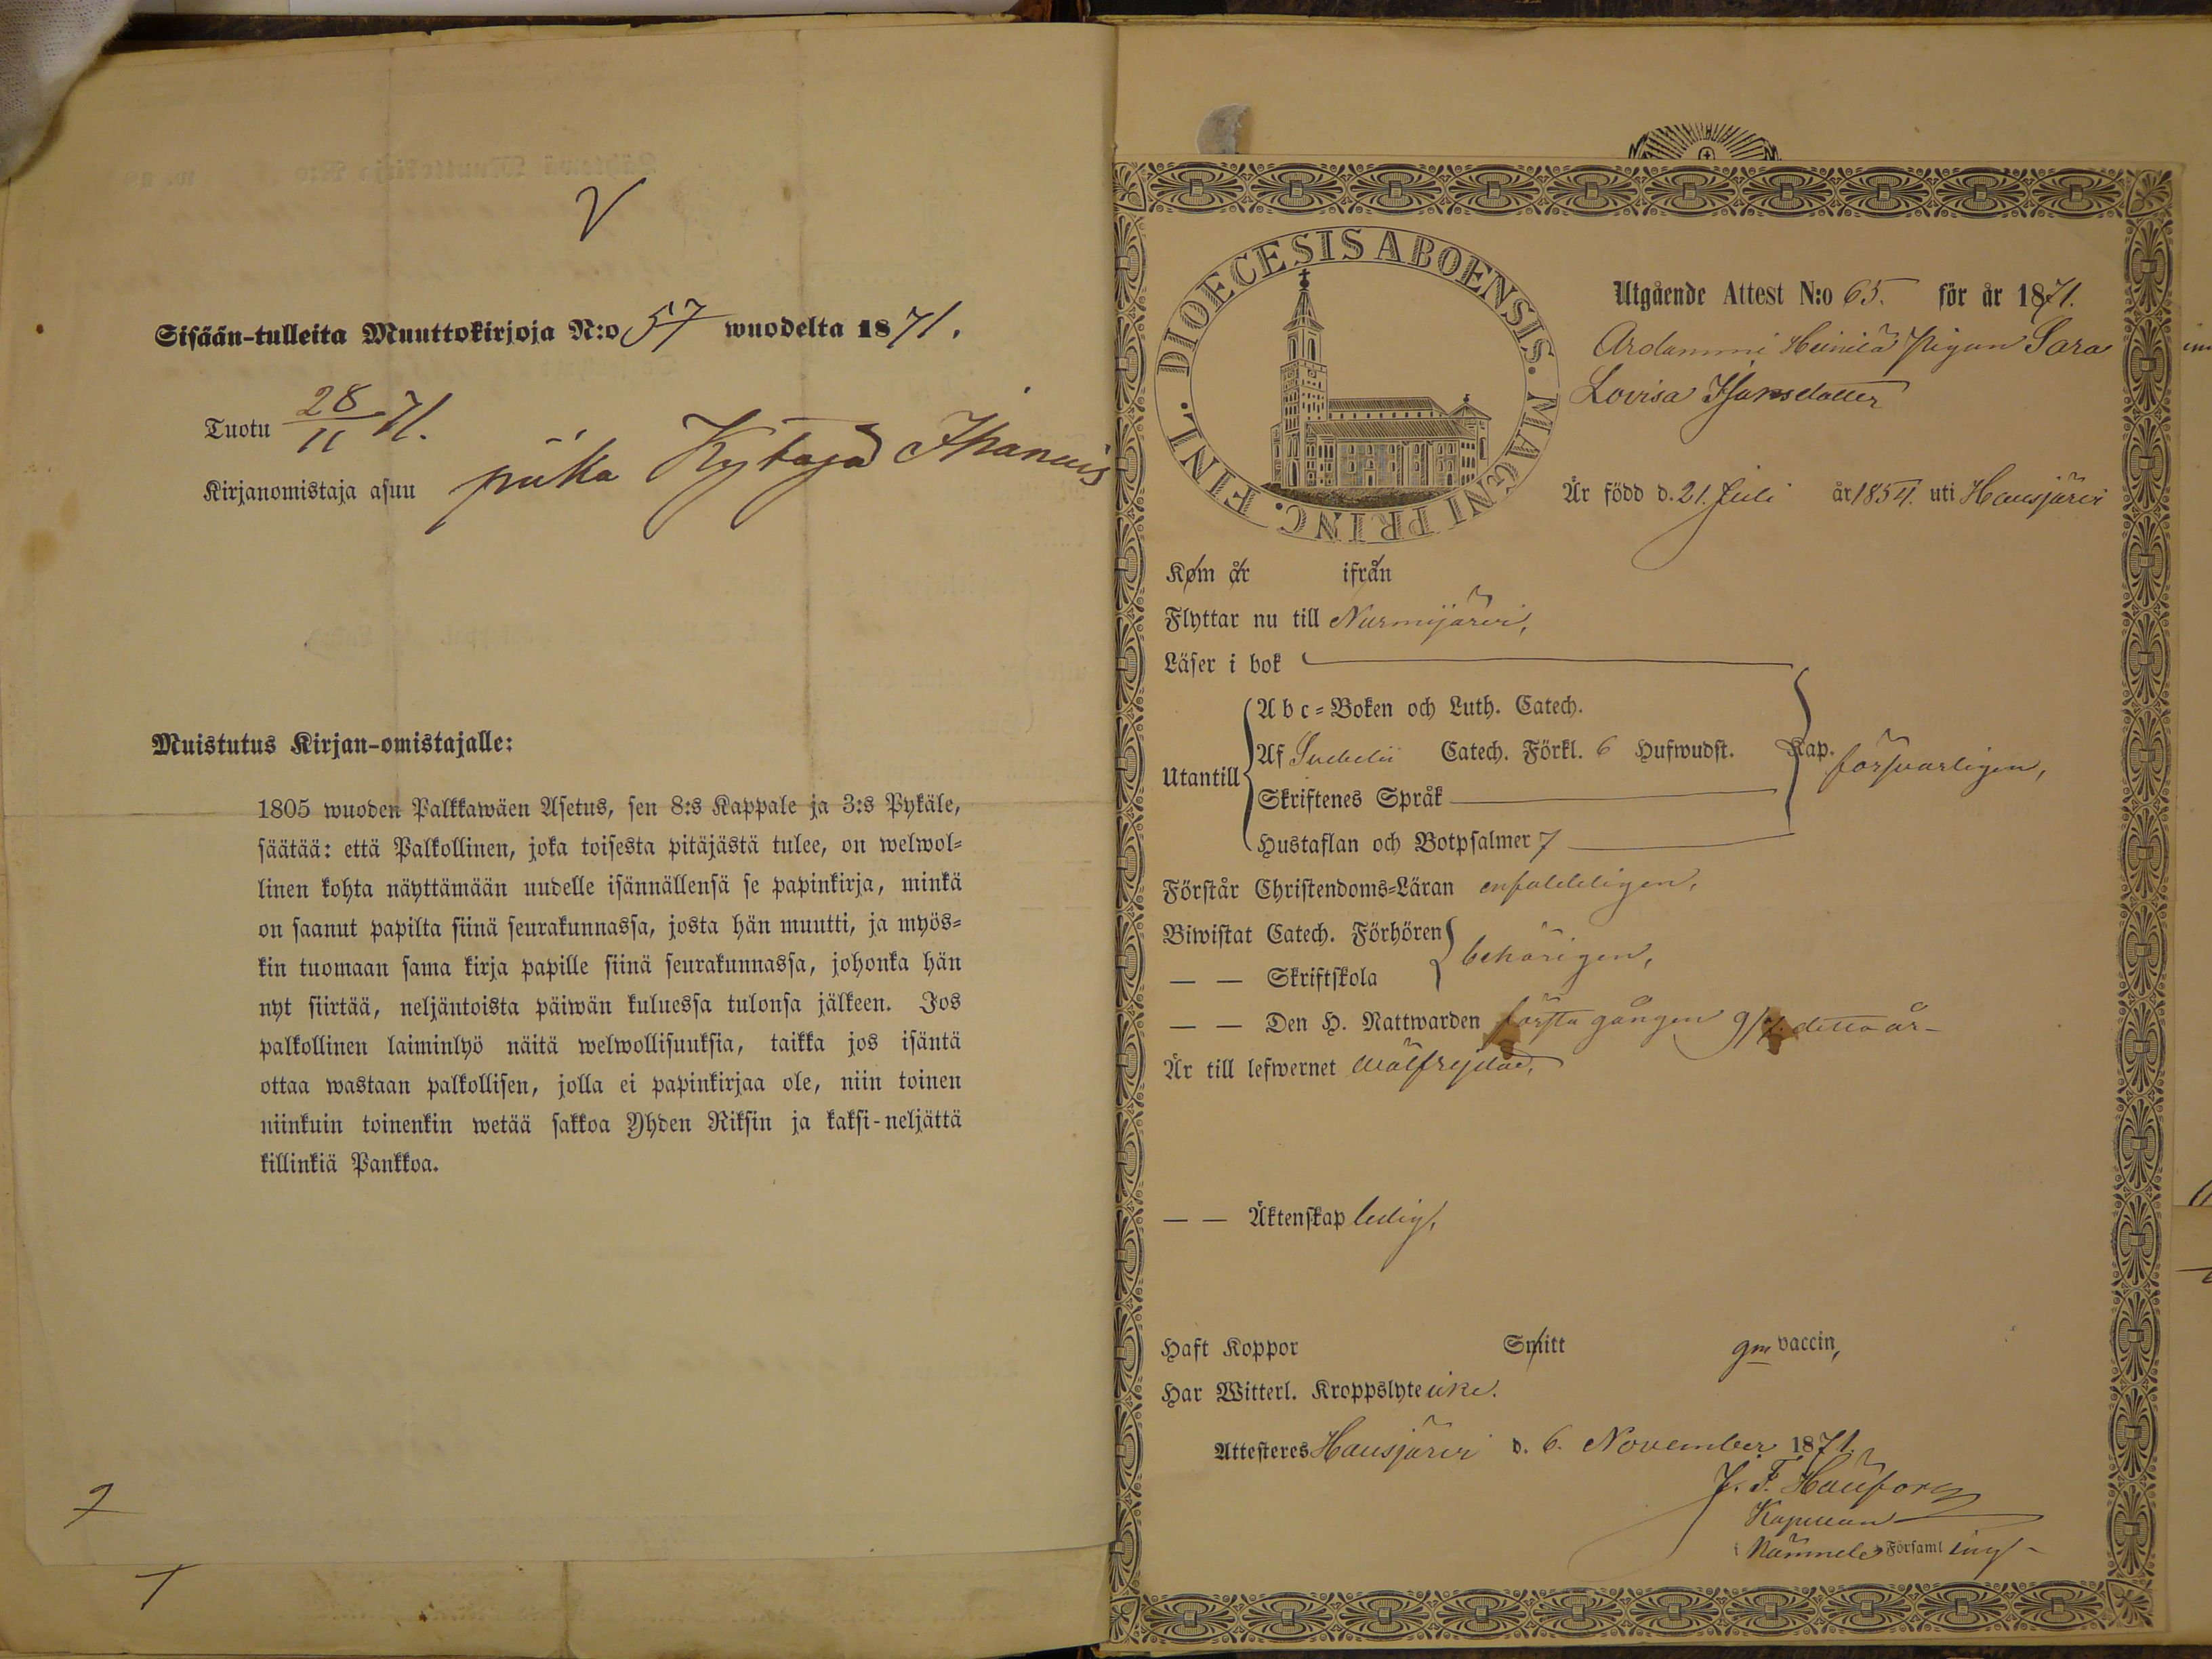 Sisään-tulleita Muuttokirjoja N:o 57 wuodelta 1871.
Tuotu 28/11 71.
Kirjanomistaja asuu piika Kytäjä
Muistutus Kirjan-omistajalle:
1805 wuoden Palkkawäen Asetus, sen 8:s Kappale ja 3:s Pykäle,
säätää: että Palkollinen, joka toisesta pitäjästä tulee, on welwol-
linen kohta näyttämään uudelle isännällensä se papinkirja, minkä
on saanut papilta siinä seurakunnassa, josta hän muutti, ja myös-
kin tuomaan sama kirja papille siinä seurakunnassa, johonka hän
nyt siirtää, neljäntoista päiwän kuluessa tulonsa jälkeen. Jos
palkollinen laiminlyö näitä welwollisuuksia, taikka jos isäntä
ottaa wastaan palkollisen, jolla ei papinkirjaa ole, niin toinen
niinkuin toinenkin wetää sakkoa Yhden Riksin ja kaksi-neljättä
killinkiä Pankkoa.
DIOECESIS ABOENSIS. MAGNI PRINC. FINL.
Utgående Attest N:o 65. för år 1871.
Heinilä Pigan Sara
Lovisa
Är född d. 21. Juli år 1854. uti Hausjärvi
Kom år ifrån
Flyttar nu till Nurmijärvi,
Läser i bok
Utantill
Abc-Boken och Luth. Catech.
Af Svebelii Catech. Förkl. 6 Hufwudst. Kap. försvarligen,
Skriftenes Språk
Hustaflan och Botpsalmer 7
Förstår Christendoms-Läran enfaldeligen,
Biwistat Catech. Förhören
behörigen,
— — Skriftskola
— — Den H. Nattwarden första gången 9/7 detta år
Är till lefwernet wälfrejdad,
— — Äktenskap ledig,
Haft Koppor Smitt gm vaccin,
Har Witterl. Kroppslyte icke.
Attesteres Hausjärvi d. 6. November 1871.
J. F.
Kapellan
i Nämnde Församling